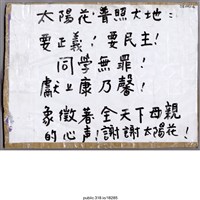 太陽花、普照大地：
要正義！要民主！
同學無罪！
獻上康乃馨！
象徵著全天下母親
的心聲！謝謝太陽花！
public.318.io/16285